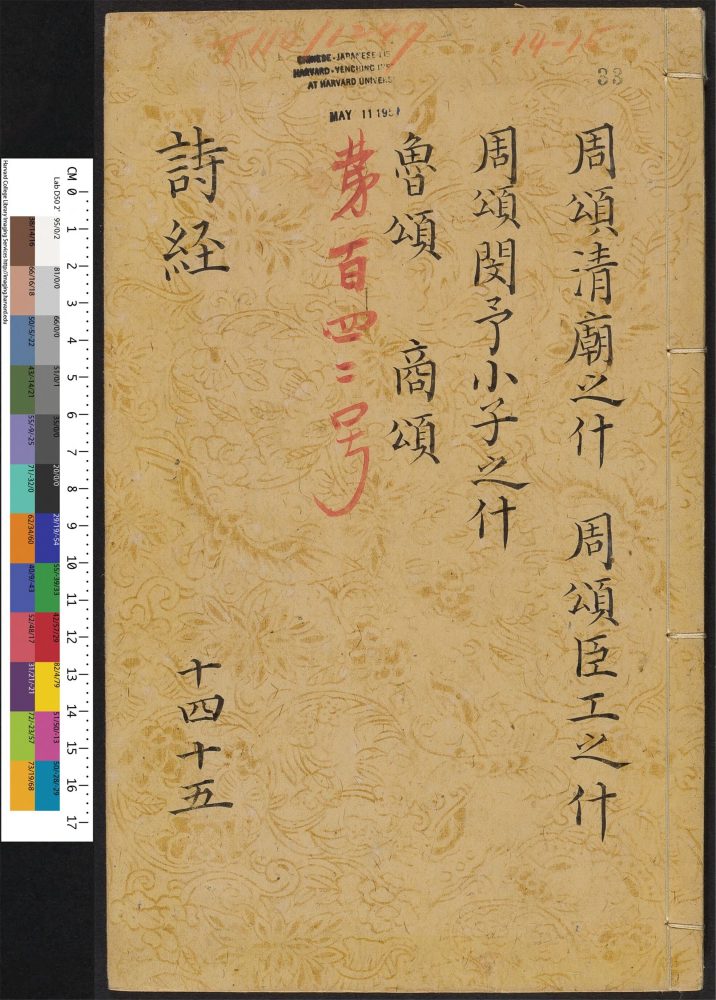 周頌清廟之什　周頌臣工之什
周頌閔予小子之什
魯頌　商頌
第百四二号
詩経
十四十五
14-15
33
CHINESE-JAPANESE
HARVARD-YENCHING
AT HARVARD
MAY 11
CM 0 1 2 3 4 5 6 7 8 9 10 11 12 13 14 15 16 17
Lab D50 2°
Harvard College Library Imaging Services http://imaging.harvard.edu